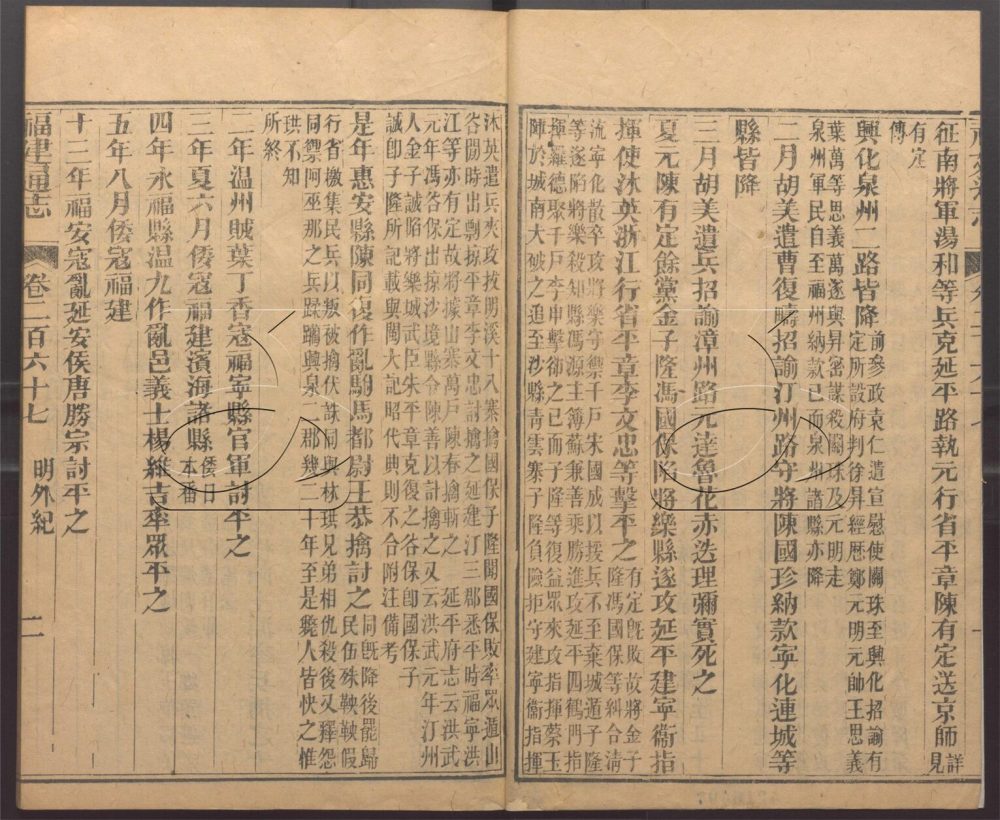 征南將軍湯和等兵克延平路執元行省平章陳有定送京師詳見
有定
傳
興化泉州二路皆降前參政袁仁遣宣慰使關珠至興化招諭有
定所設府判徐昇經歷鄭元明元帥王思義
葉萬等思義萬遂與昇密謀殺關珠及元明走
泉州軍民自至福州納款已而泉州諸縣亦降
二月胡美遣曹復疇招諭汀州路守將陳國珍納款寧化連城等
縣皆降
三月胡美遣兵招諭漳州路元達魯花赤迭理彌實死之
夏元陳有定餘黨金子隆馮國保陷將樂縣遂攻延平建寧衞指
揮使沐英浙江行省平章李文忠等擊平之有定旣敗故將金子
隆馮國保等糾合淸
流寧化散卒攻將樂守禦千戸朱國成以援兵不至棄城遁子隆
等遂陷將樂殺知縣馮源主簿蘇兼善乘勝進攻延平四鶴門指
揮羅德聚千戸李申擊卻之已而子隆等復益眾來攻指揮蔡玉
陣於城南大破之追至沙縣靑雲寨子隆負險拒守建寧衞指揮
沐英遣兵夾攻拔明溪十八寨擒國保子隆聞國保敗率眾遁山
谷間時出剽掠平章李文忠討擒之延建汀三郡悉平時福寧洪
江等亦有定故將據山寨萬戸陳春擒斬之　延平府志云洪武
元年馮谷保出掠沙境縣令陳善以計擒之又云洪武元年汀州
人金子誠陷將樂城武臣朱平章克復之谷保卽國保子
誠卽子隆所記載與閩大記昭代典則不合附注備考
是年惠安縣陳同復作亂駙馬都尉王恭擒討之同旣降後罷歸
民伍殊鞅鞅假
行省檄集民兵以叛被擒伏誅同與林珙兄弟相仇殺後又釋怨
同禦阿巫那之兵蹂躪興泉二郡幾二十年至是斃人皆快之惟
珙不知
所終
二年温州賊葉丁香寇福寧縣官軍討平之
三年夏六月倭寇福建濱海諸縣倭日
本番
四年永福縣温九作亂邑義士楊維吉率眾平之
五年八月倭寇福建
十二年福安寇亂延安侯唐勝宗討平之
福建通志
卷二百六十七
明外紀
二